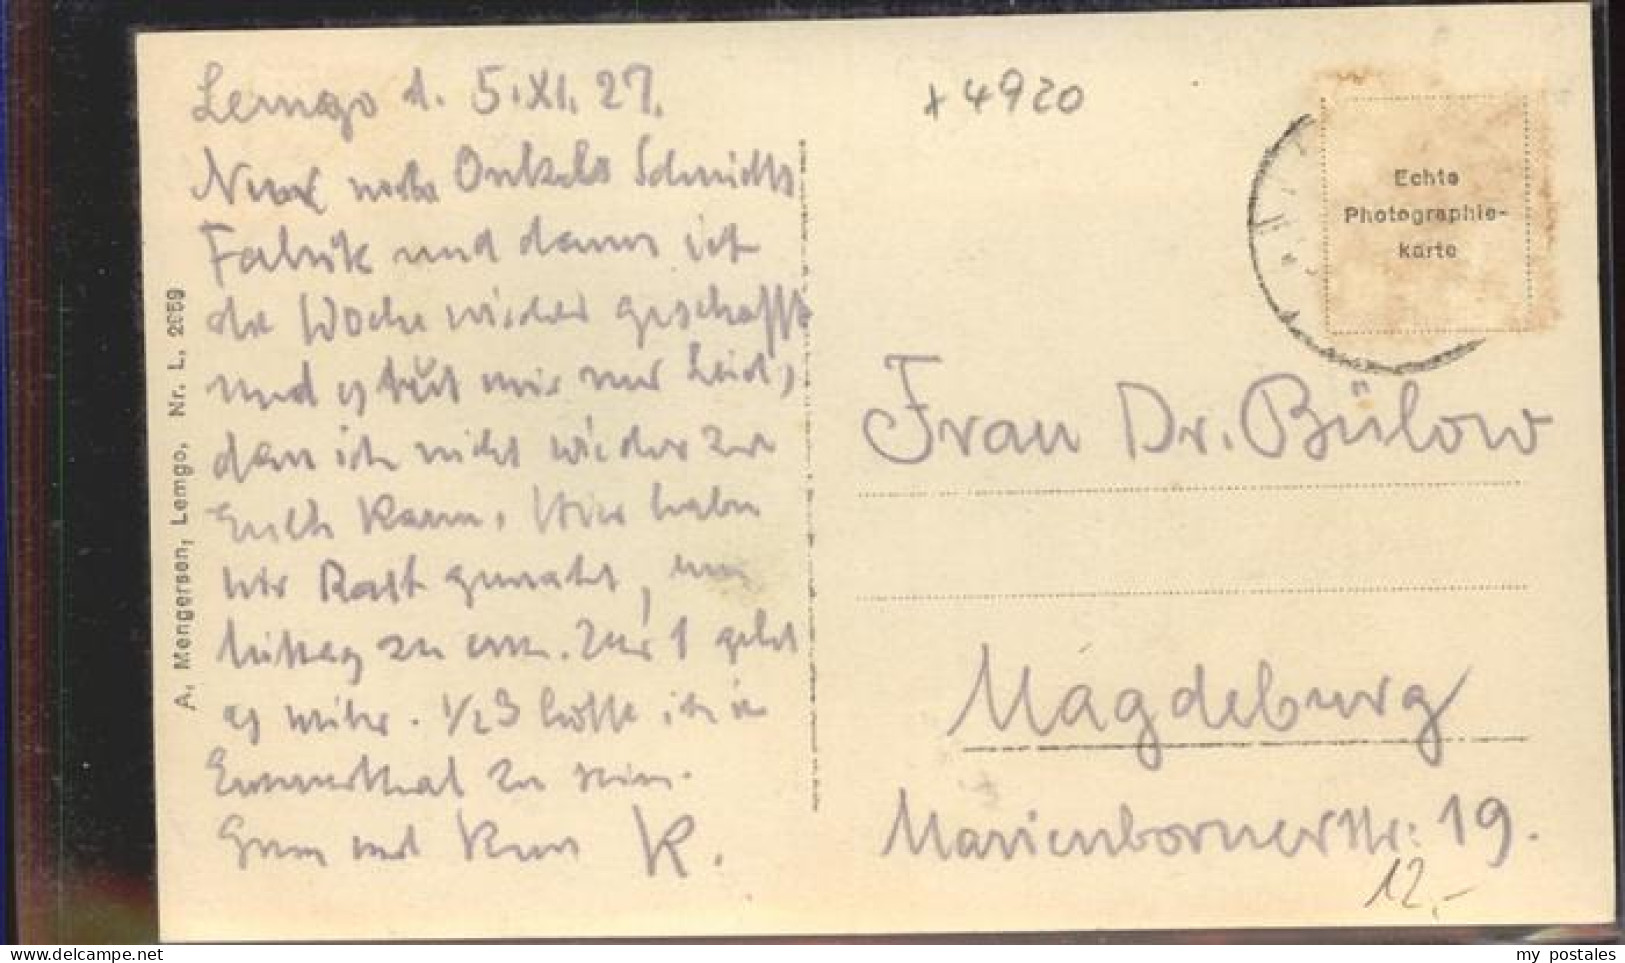 Lemgo d. 5.XI.27.
Nur noch Onkels Schmidts
Fabrik und dann ist
die Woche wieder geschafft
und es tut mir nur Leid,
dass ich nicht wieder zu
Euch kann. Hier haben
wir Rast gemacht, um
Mittag zu essen. Um 1 geht
es weiter. 1/2 3 hoffe ich in
Emmerthal zu sein.
Gruss und Kuss K.
A. Mengersen, Lemgo. Nr. L. 2959
+ 4920
Echte
Photographie-
karte
Frau Dr. Bülow
Magdeburg
Marienbornerstr: 19.
12,-
my postales